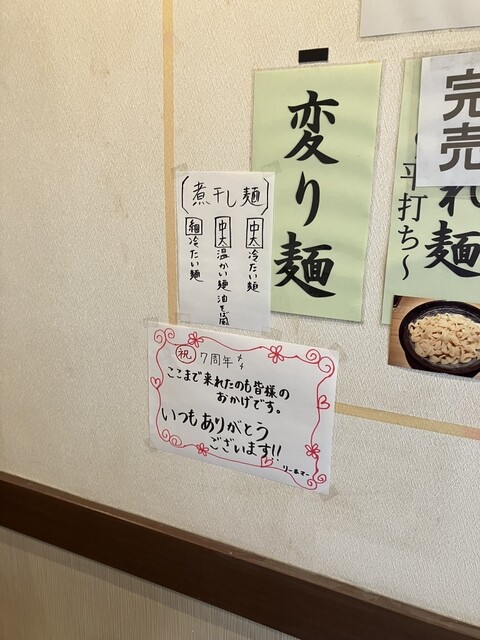 変り麺
完売
れ麺
〜平打ち〜
(煮干し麺)
中太 冷たい麺
中太 温かい麺 油そば風
細 冷たい麺
祝 7周年
ここまで来れたのも皆様の
おかげです。
いつもありがとう
ございます!!